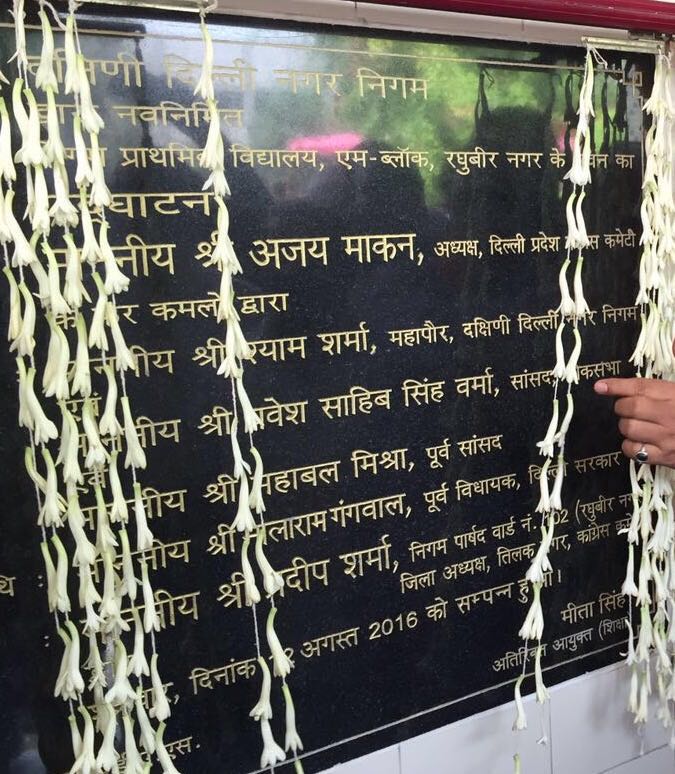 दक्षिणी दिल्ली नगर निगम
द्वारा नवनिर्मित
प्राथमिक विद्यालय, एम-ब्लॉक, रघुबीर नगर के भवन का
उद्घाटन
माननीय श्री अजय माकन, अध्यक्ष, दिल्ली प्रदेश कांग्रेस कमेटी
के कर कमलों द्वारा
माननीय श्री श्याम शर्मा, महापौर, दक्षिणी दिल्ली नगर निगम
एवं
माननीय श्री प्रवेश साहिब सिंह वर्मा, सांसद लोकसभा
एवं
माननीय श्री महाबल मिश्रा, पूर्व सांसद
माननीय श्री मालाराम गंगवाल, पूर्व विधायक, दिल्ली सरकार
माननीय श्री प्रदीप शर्मा, निगम पार्षद वार्ड नं. (रघुबीर नगर
जिला अध्यक्ष, तिलक नगर, कांग्रेस कमेटी
दिनांक अगस्त 2016 को सम्पन्न हुआ।
मीता सिंह
अतिरिक्त आयुक्त (शिक्षा
एस.